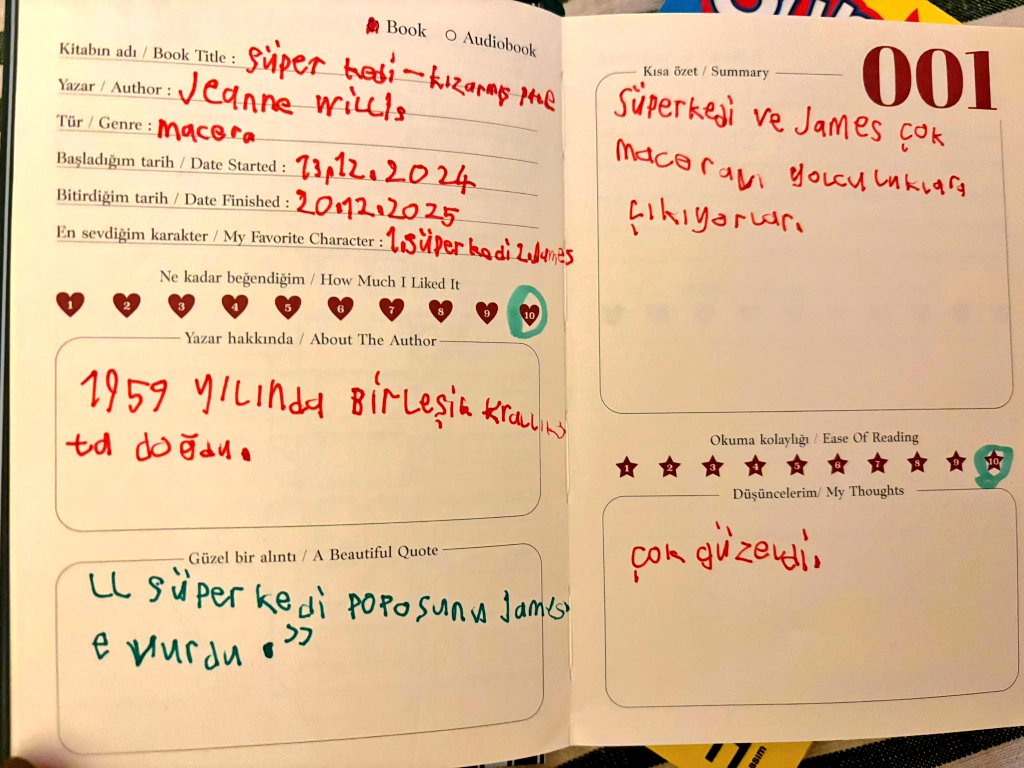 Book Audiobook
Kitabın adı / Book Title : süper kedi - kızarmış
Yazar / Author : Jeanne Willis
Tür / Genre : macera
Başladığım tarih / Date Started : 13.12.2024
Bitirdiğim tarih / Date Finished : 20.12.2025
En sevdiğim karakter / My Favorite Character : 1.süper kedi 2.James
Ne kadar beğendiğim / How Much I Liked It
1 2 3 4 5 6 7 8 9 10
Yazar hakkında / About The Author
1959 yılında Birleşik krallık
ta doğdu.
Güzel bir alıntı / A Beautiful Quote
"süper kedi poposunu James
e vurdu."
001
Kısa özet / Summary
süperkedi ve James çok
maceralı yolculuklara
çıkıyorlar.
Okuma kolaylığı / Ease Of Reading
1 2 3 4 5 6 7 8 9 10
Düşüncelerim/ My Thoughts
çok güzeldi.